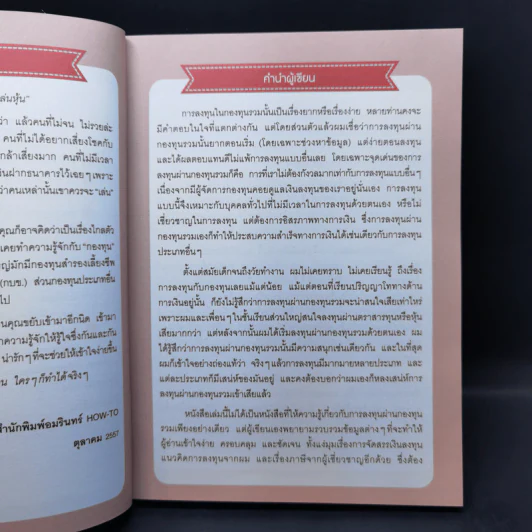 เล่นหุ้น"
ว่า แล้วคนที่ไม่จน ไม่รวยล่ะ
คนที่ไม่ได้อยากเสี่ยงโชคกับ
กล้าเสี่ยงมาก คนที่ไม่มีเวลา
งินฝากธนาคารไว้เฉยๆ เพราะ
ว่าคนเหล่านั้นเขาควรจะ "เล่น"
คุณก็อาจคิดว่าเป็นเรื่องไกลตัว
เคยทำความรู้จักกับ "กองทุน"
ญ่มักมีกองทุนสำรองเลี้ยงชีพ
(กบข.) ส่วนกองทุนประเภทอื่น
ไป
นคุณขยับเข้ามาอีกนิด เข้ามา
าความรู้จักให้รู้ใจซึ่งกันและกัน
น่ารักๆ ที่จะช่วยให้เข้าใจง่ายขึ้น
น ใครๆ ก็ทำได้จริงๆ
สำนักพิมพ์อมรินทร์ HOW-TO
ตุลาคม 2557
คำนำผู้เขียน
การลงทุนในกองทุนรวมนั้นเป็นเรื่องยากหรือเรื่องง่าย หลายท่านคงจะ
มีคำตอบในใจที่แตกต่างกัน แต่โดยส่วนตัวแล้วผมเชื่อว่าการลงทุนผ่าน
กองทุนรวมนั้นยากตอนเริ่ม (โดยเฉพาะช่วงหาข้อมูล) แต่ง่ายตอนลงทุน
และได้ผลตอบแทนดีไม่แพ้การลงทุนแบบอื่นเลย โดยเฉพาะจุดเด่นของการ
ลงทุนผ่านกองทุนรวมก็คือ การที่เราไม่ต้องกังวลมากเท่ากับการลงทุนแบบอื่นๆ
เนื่องจากมีผู้จัดการกองทุนคอยดูแลเงินลงทุนของเราอยู่นั่นเอง การลงทุน
แบบนี้จึงเหมาะกับบุคคลทั่วไปที่ไม่มีเวลาในการลงทุนด้วยตนเอง หรือไม่
เชี่ยวชาญในการลงทุน แต่ต้องการอิสรภาพทางการเงิน ซึ่งการลงทุนผ่าน
กองทุนรวมเองก็ทำให้ประสบความสำเร็จทางการเงินได้เช่นเดียวกับการลงทุน
ประเภทอื่นๆ
ตั้งแต่สมัยเด็กจนถึงวัยทำงาน ผมไม่เคยทราบ ไม่เคยเรียนรู้ ถึงเรื่อง
การลงทุนกับกองทุนเลยแม้แต่น้อย แม้แต่ตอนที่เรียนปริญญาโททางด้าน
การเงินอยู่นั้น ก็ยังไม่รู้สึกว่าการลงทุนผ่านกองทุนรวมจะน่าสนใจเสียเท่าไหร่
เพราะผมและเพื่อนๆ ในชั้นเรียนส่วนใหญ่สนใจลงทุนผ่านตราสารทุนหรือหุ้น
เสียมากกว่า แต่หลังจากนั้นผมได้เริ่มลงทุนผ่านกองทุนรวมด้วยตนเอง ผม
ได้รู้สึกว่าการลงทุนผ่านกองทุนรวมนั้นมีความสนุกเช่นเดียวกัน และในที่สุด
ผมก็เข้าใจอย่างถ่องแท้ว่า จริงๆ แล้วการลงทุนมีมากมายหลายประเภท และ
แต่ละประเภทก็มีเสน่ห์ของมันอยู่ และคงต้องบอกว่าผมเองก็หลงเสน่ห์การ
ลงทุนผ่านกองทุนรวมเข้าเสียแล้ว
หนังสือเล่มนี้ไม่ได้เป็นหนังสือที่ให้ความรู้เกี่ยวกับการลงทุนผ่านกองทุน
รวมเพียงอย่างเดียว แต่ผู้เขียนเองพยายามรวบรวมข้อมูลต่างๆ ที่จะทำให้
ผู้อ่านเข้าใจง่าย ครอบคลุม และชัดเจน ทั้งแง่มุมเรื่องการจัดสรรเงินลงทุน
แนวคิดการลงทุนจากผม และเรื่องภาษีจากผู้เชี่ยวชาญอีกด้วย ซึ่งต้อง